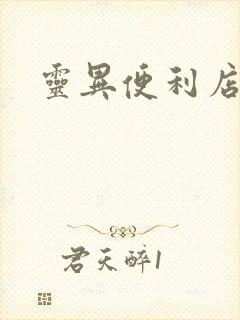 靈異便利店
君天醉1